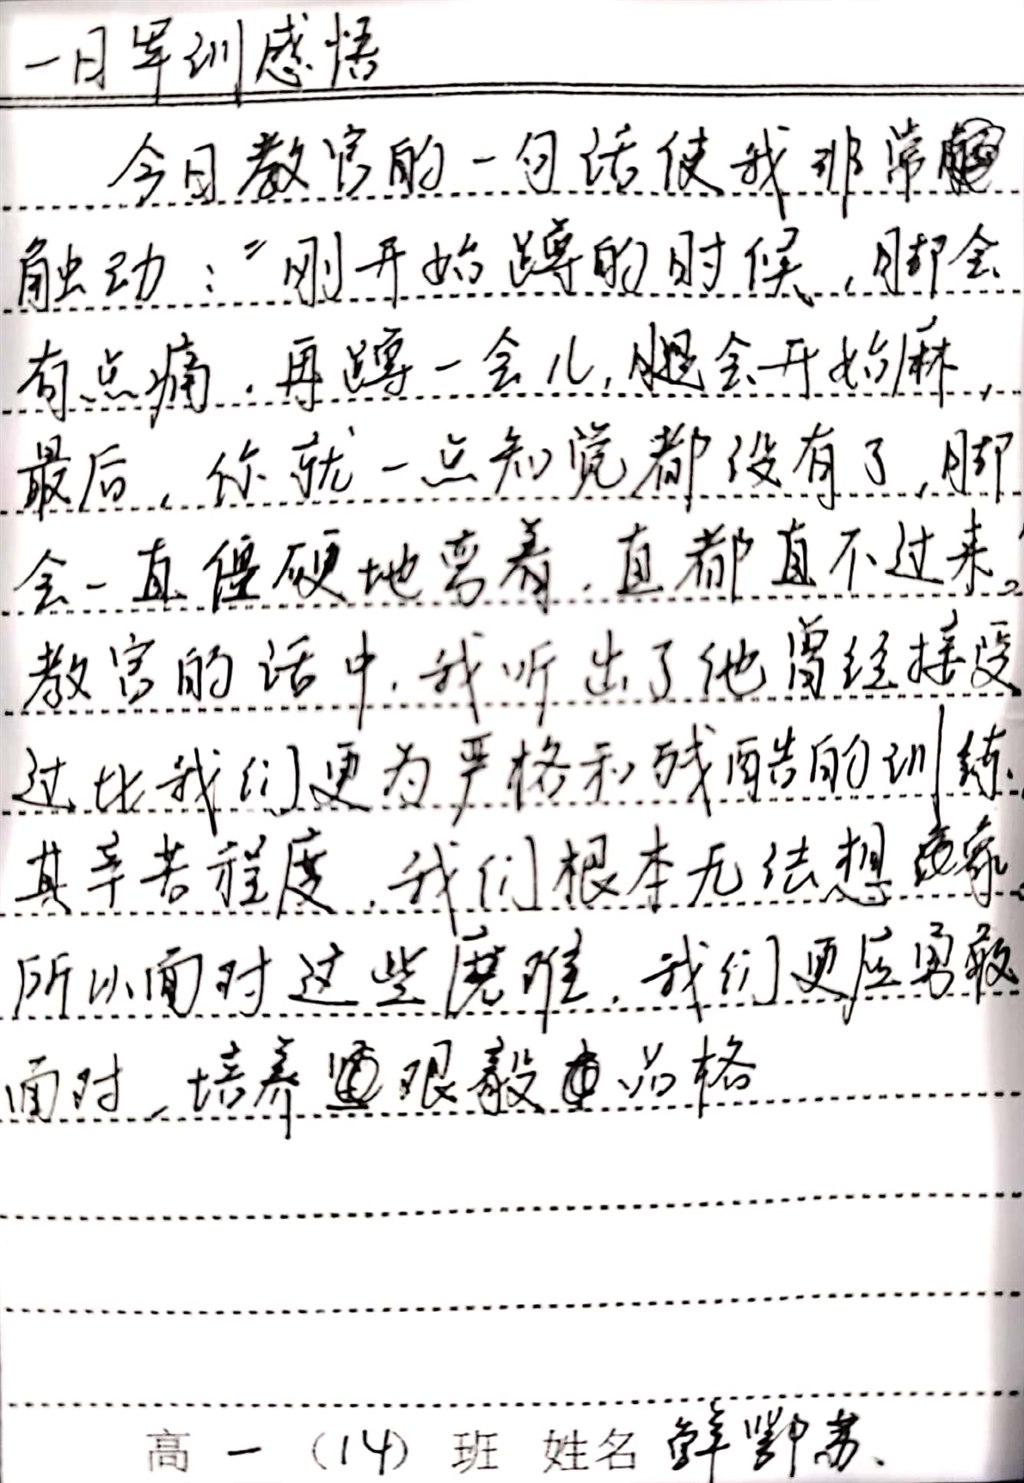 一日军训感悟
今日教官的一句话使我非常
触动：“刚开始蹲的时候，脚会
有点痛，再蹲一会儿，腿会开始麻，
最后，你就一点知觉都没有了，脚
会一直僵硬地弯着，直都直不过来”。
教官的话中，我听出了他曾经接受
过比我们更为严格和残酷的训练，
其辛苦程度，我们根本无法想象。
所以面对这些磨难，我们更应勇敢
面对，培养 艰毅 品格
高一（14）班 姓名